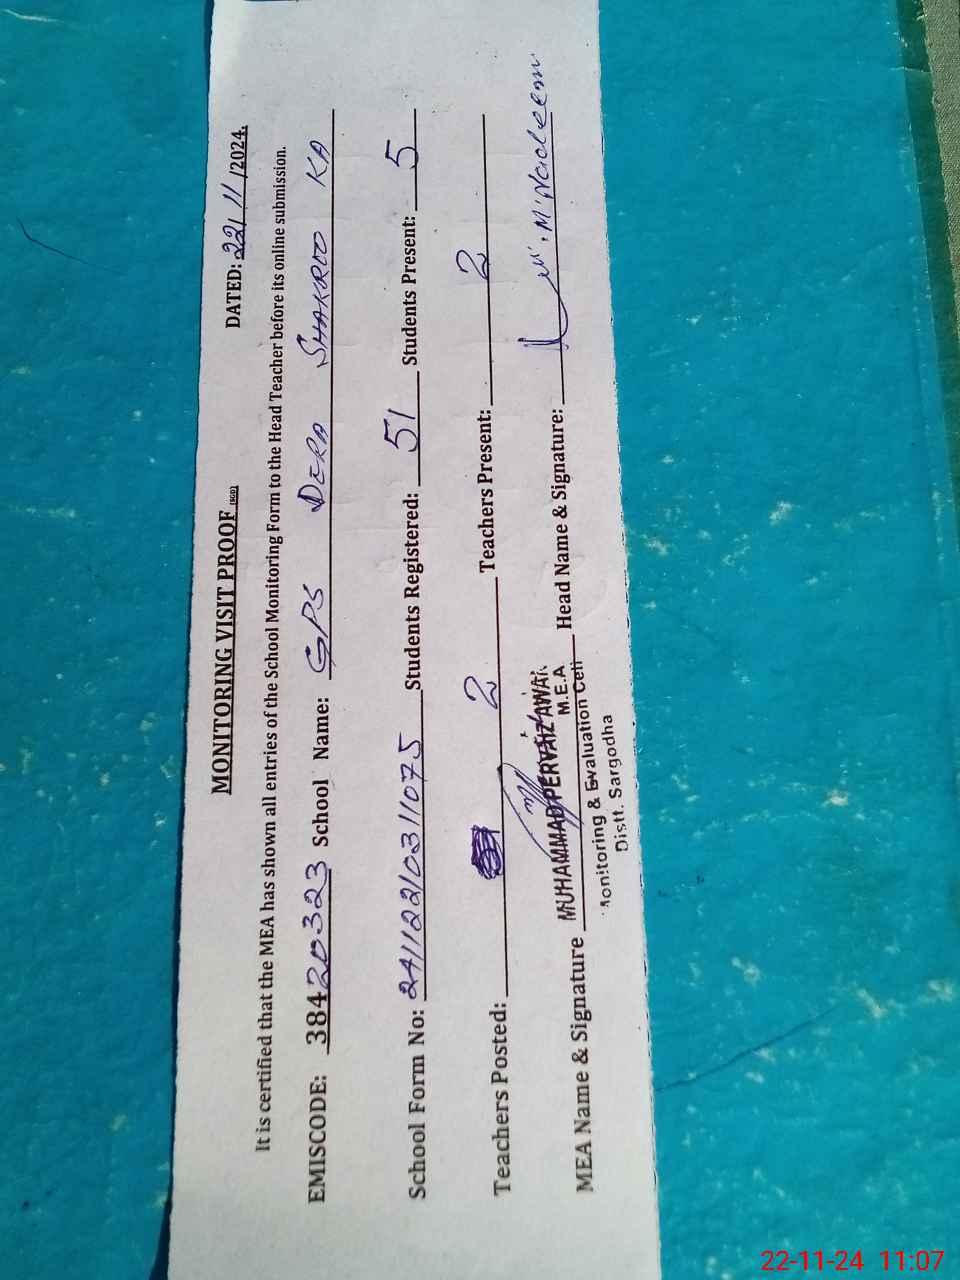 MONITORING VISIT PROOF (SGD)
DATED: 22/11/2024.
It is certified that the MEA has shown all entries of the School Monitoring Form to the Head Teacher before its online submission.
EMISCODE: 38420323 School Name: GPS DERA SHAKROO KA
School Form No: 24112210311075 Students Registered: 51 Students Present: 5
Teachers Posted: 2 Teachers Present: 2
MEA Name & Signature MUHAMMAD PERVAIZ AWAN Head Name & Signature: M. Nadeem
M.E.A
Monitoring & Evaluation Cell
Distt. Sargodha
22-11-24 11:07